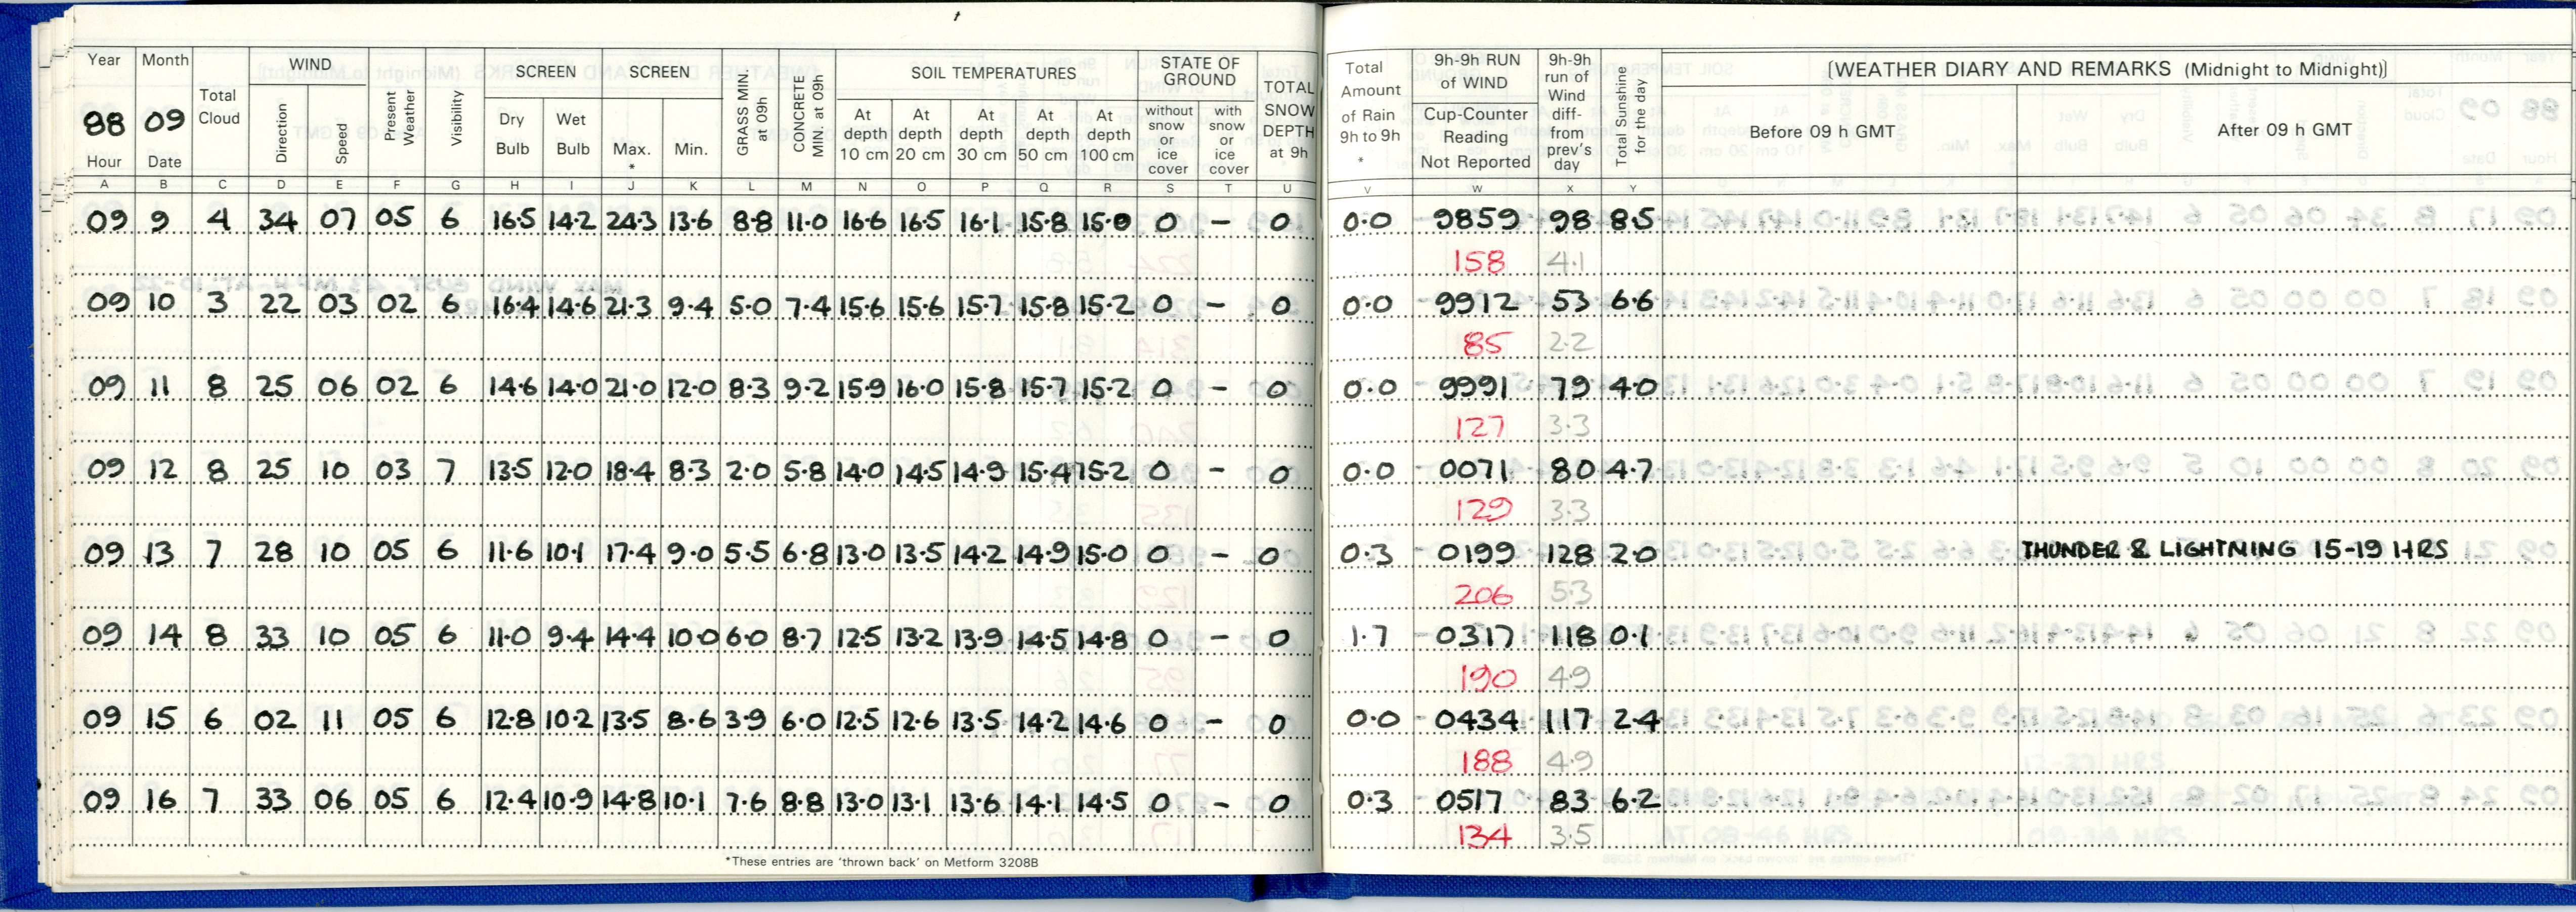 Year Month Total Cloud WIND Present Weather Visibility SCREEN SCREEN GRASS MIN. at 09h CONCRETE MIN. at 09h SOIL TEMPERATURES STATE OF GROUND TOTAL SNOW DEPTH at 9h Total Amount of Rain 9h to 9h * 9h-9h RUN of WIND 9h-9h run of Wind diff- from prev's day Total Sunshine for the day [WEATHER DIARY AND REMARKS (Midnight to Midnight)]
88 09 Direction Speed Dry Bulb Wet Bulb Max. * Min. At depth 10 cm At depth 20 cm At depth 30 cm At depth 50 cm At depth 100 cm without snow or ice cover with snow or ice cover Cup-Counter Reading Not Reported Before 09 h GMT After 09 h GMT
Hour Date
A B C D E F G H I J K L M N O P Q R S T U V W X Y
09 9 4 34 07 05 6 16.5 14.2 24.3 13.6 8.8 11.0 16.6 16.5 16.1 15.8 15.0 0 - 0 0.0 9859 98 8.5
158 4.1
09 10 3 22 03 02 6 16.4 14.6 21.3 9.4 5.0 7.4 15.6 15.6 15.7 15.8 15.2 0 - 0 0.0 9912 53 6.6
85 2.2
09 11 8 25 06 02 6 14.6 14.0 21.0 12.0 8.3 9.2 15.9 16.0 15.8 15.7 15.2 0 - 0 0.0 9991 79 4.0
127 3.3
09 12 8 25 10 03 7 13.5 12.0 18.4 8.3 2.0 5.8 14.0 14.5 14.9 15.4 15.2 0 - 0 0.0 0071 80 4.7
129 3.3
09 13 7 28 10 05 6 11.6 10.1 17.4 9.0 5.5 6.8 13.0 13.5 14.2 14.9 15.0 0 - 0 0.3 0199 128 2.0 THUNDER & LIGHTNING 15-19 HRS
206 5.3
09 14 8 33 10 05 6 11.0 9.4 14.4 10.0 6.0 8.7 12.5 13.2 13.9 14.5 14.8 0 - 0 1.7 0317 118 0.1
190 4.9
09 15 6 02 11 05 6 12.8 10.2 13.5 8.6 3.9 6.0 12.5 12.6 13.5 14.2 14.6 0 - 0 0.0 0434 117 2.4
188 4.9
09 16 7 33 06 05 6 12.4 10.9 14.8 10.1 7.6 8.8 13.0 13.1 13.6 14.1 14.5 0 - 0 0.3 0517 83 6.2
134 3.5
*These entries are 'thrown back' on Metform 3208B